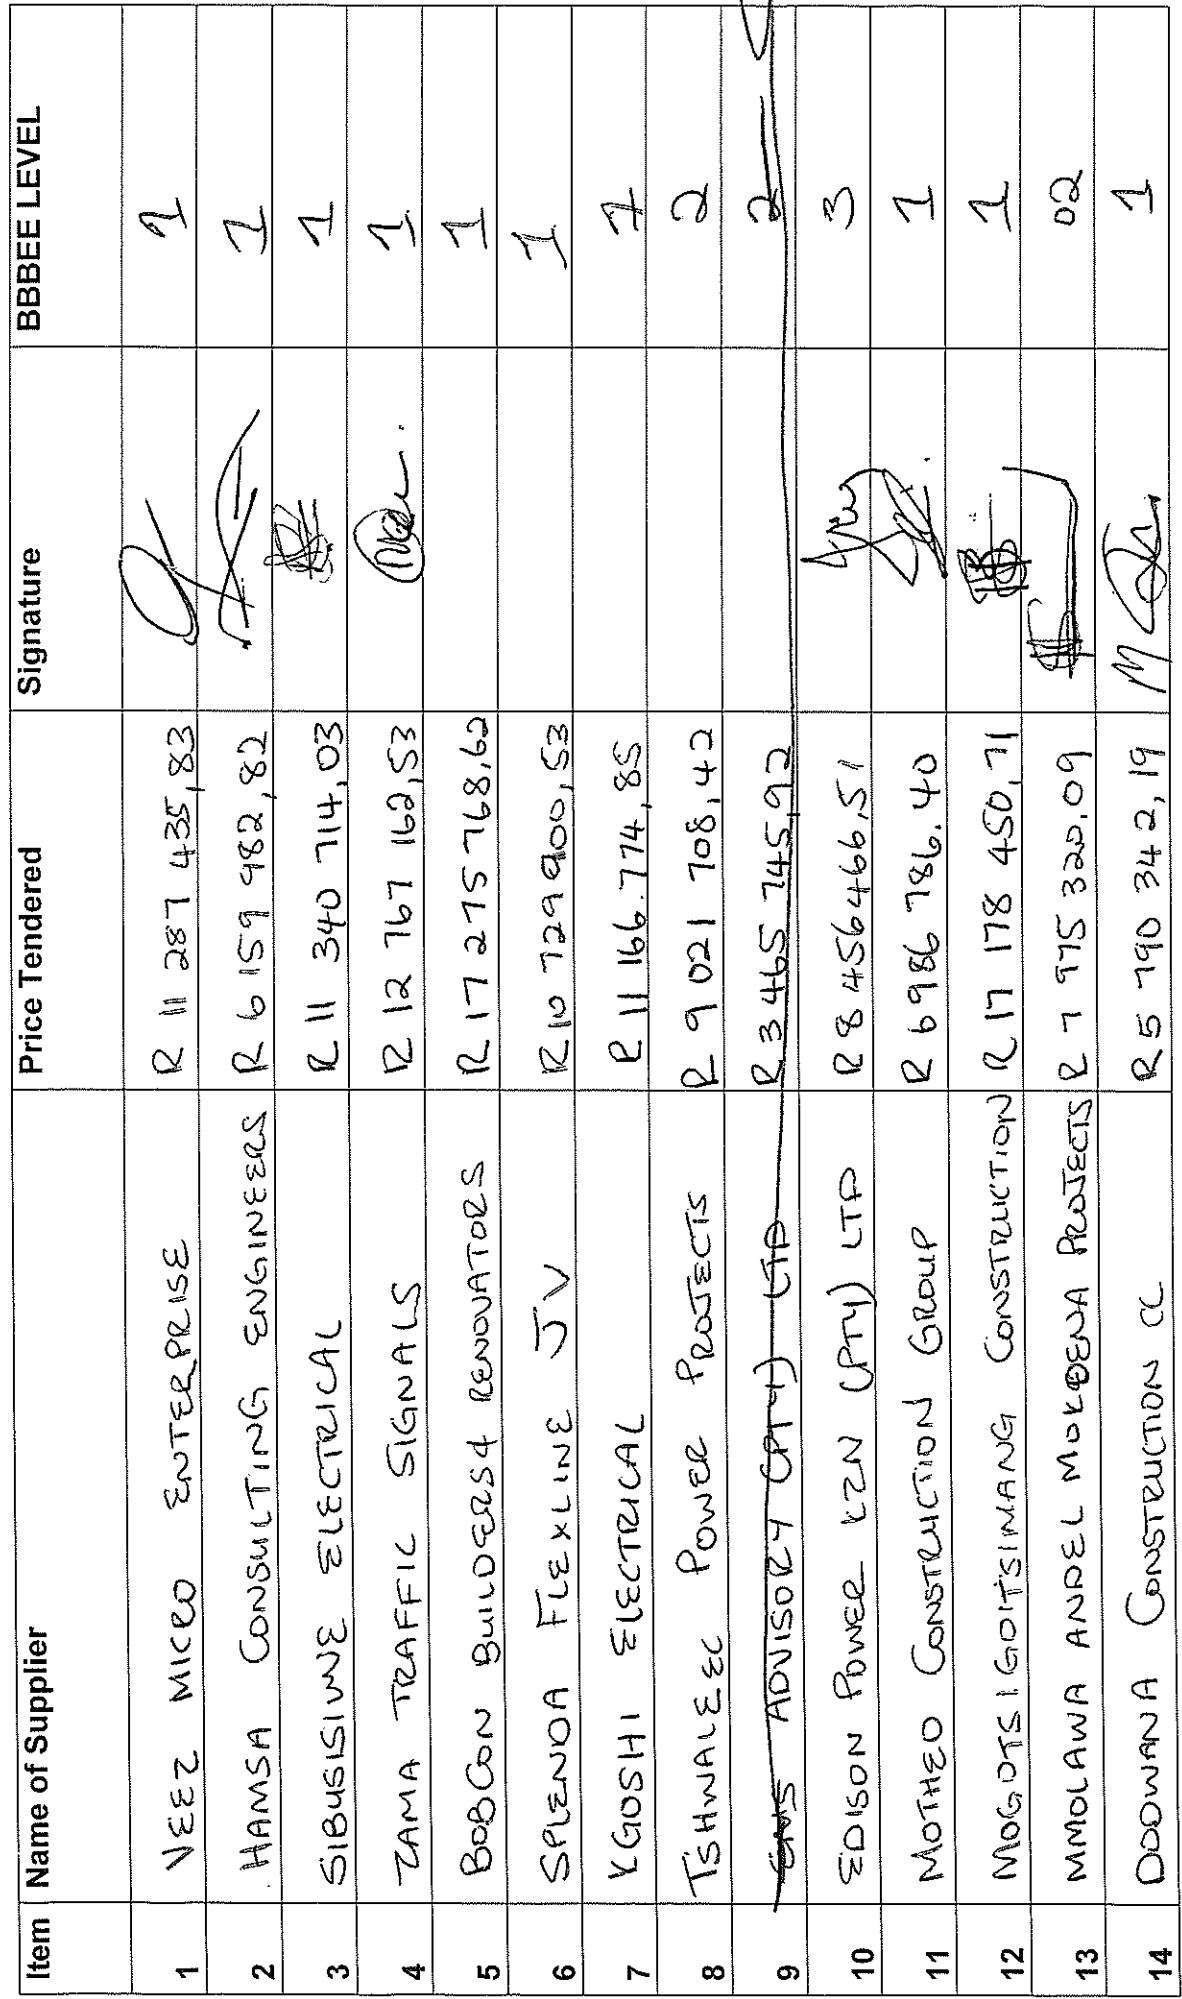 Item Name of Supplier Price Tendered Signature BBBEE LEVEL
1 VEEZ MICRO ENTERPRISE R 11 287 435,83 1
2 HAMSA CONSULTING ENGINEERS R 6 159 982,82 1
3 SIBUSISIWE ELECTRICAL R 11 340 714,03 1
4 ZAMA TRAFFIC SIGNALS R 12 767 162,53 1
5 BOBCON BUILDERS & RENOVATORS R 17 275 768,62 1
6 SPLENDA FLEXLINE JV R 10 729 900,53 1
7 KGOSHI ELECTRICAL R 11 166.774,85 1
8 TSHWALEEC POWER PROJECTS R 9 021 708,42 2
9 ADVISORY (PTY) LTD R 3 465 745,92 2
10 EDISON POWER KZN (PTY) LTD R 8 456466,51 3
11 MOTHEO CONSTRUCTION GROUP R 6 986 786.40 1
12 MOGOTSIGOITSIMANG CONSTRUCTION R 17 178 450,71 1
13 MMOLAWA ANDEL MOKOENA PROJECTS R 7 975 320,09 02
14 DODWANA CONSTRUCTION CC R 5 790 342,19 1